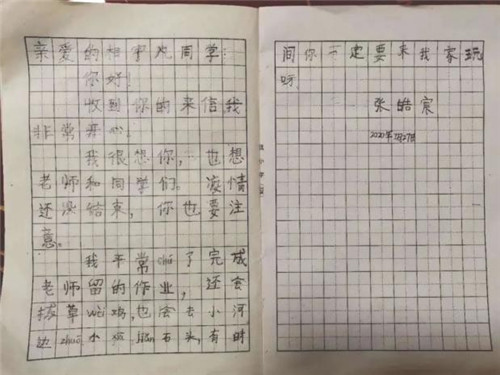 亲爱的相宇凡同学:
你好!
收到你的来信我
非常开心!
我很想你,也想
老师和同学们。凌情
还没结束,你也要注
意。
我平常chú了完成
老师留的作业,还会
拔草喂鸡,也会去小河
边zhuō小jiǎn石头,有时
间你一定要来我家玩
呀!
张皓宸
2020年2月27日